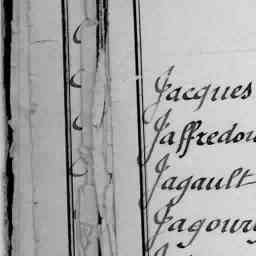 Jacques
Jaffredou
Jagault
Jagoury